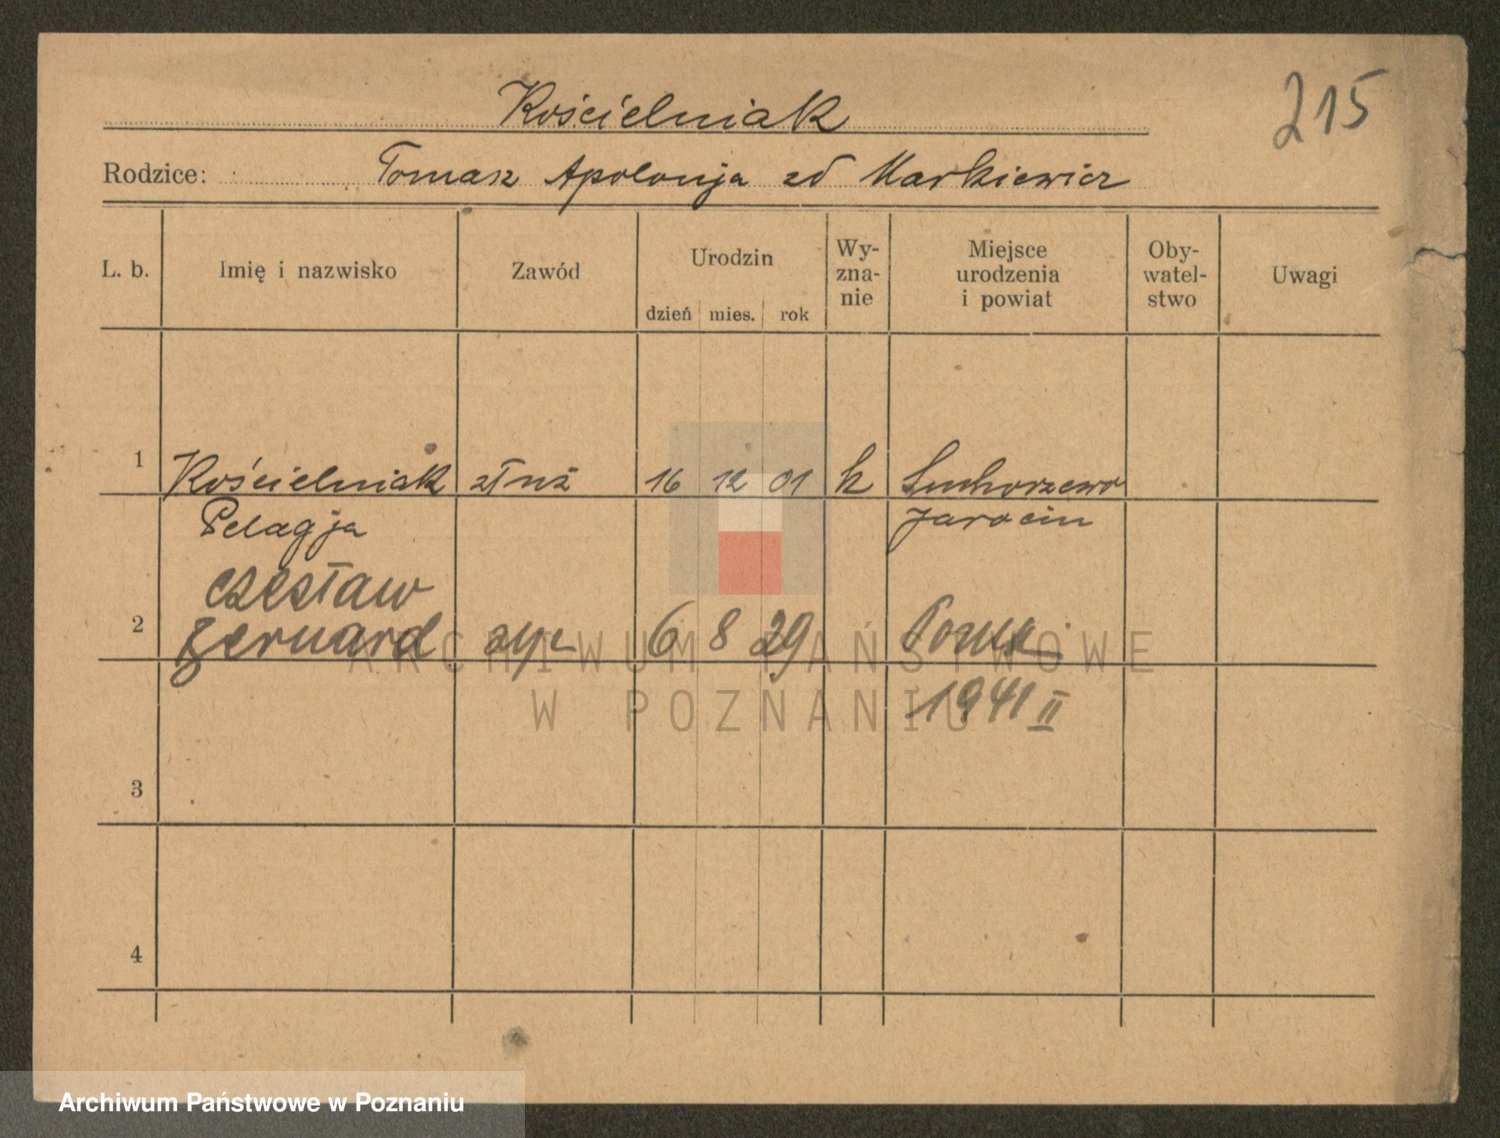 Kościelniak
215
Rodzice: Tomasz Apolonja zd Markiewicz
L. b. Imię i nazwisko Zawód Urodzin dzień mies. rok Wy-zna-nie Miejsce urodzenia i powiat Oby-watel-stwo Uwagi
1 Kościelniak służ 16 12 01 k Suchorzewo
Pelagja Jarocin
Czesław
2 Bernard 6 8 29 Pozn.
1941 II
3
4
ARCHIWUM PAŃSTWOWE
W POZNANIU
Archiwum Państwowe w Poznaniu